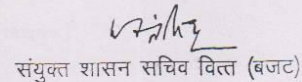 संयुक्त शासन सचिव वित्त (बजट)